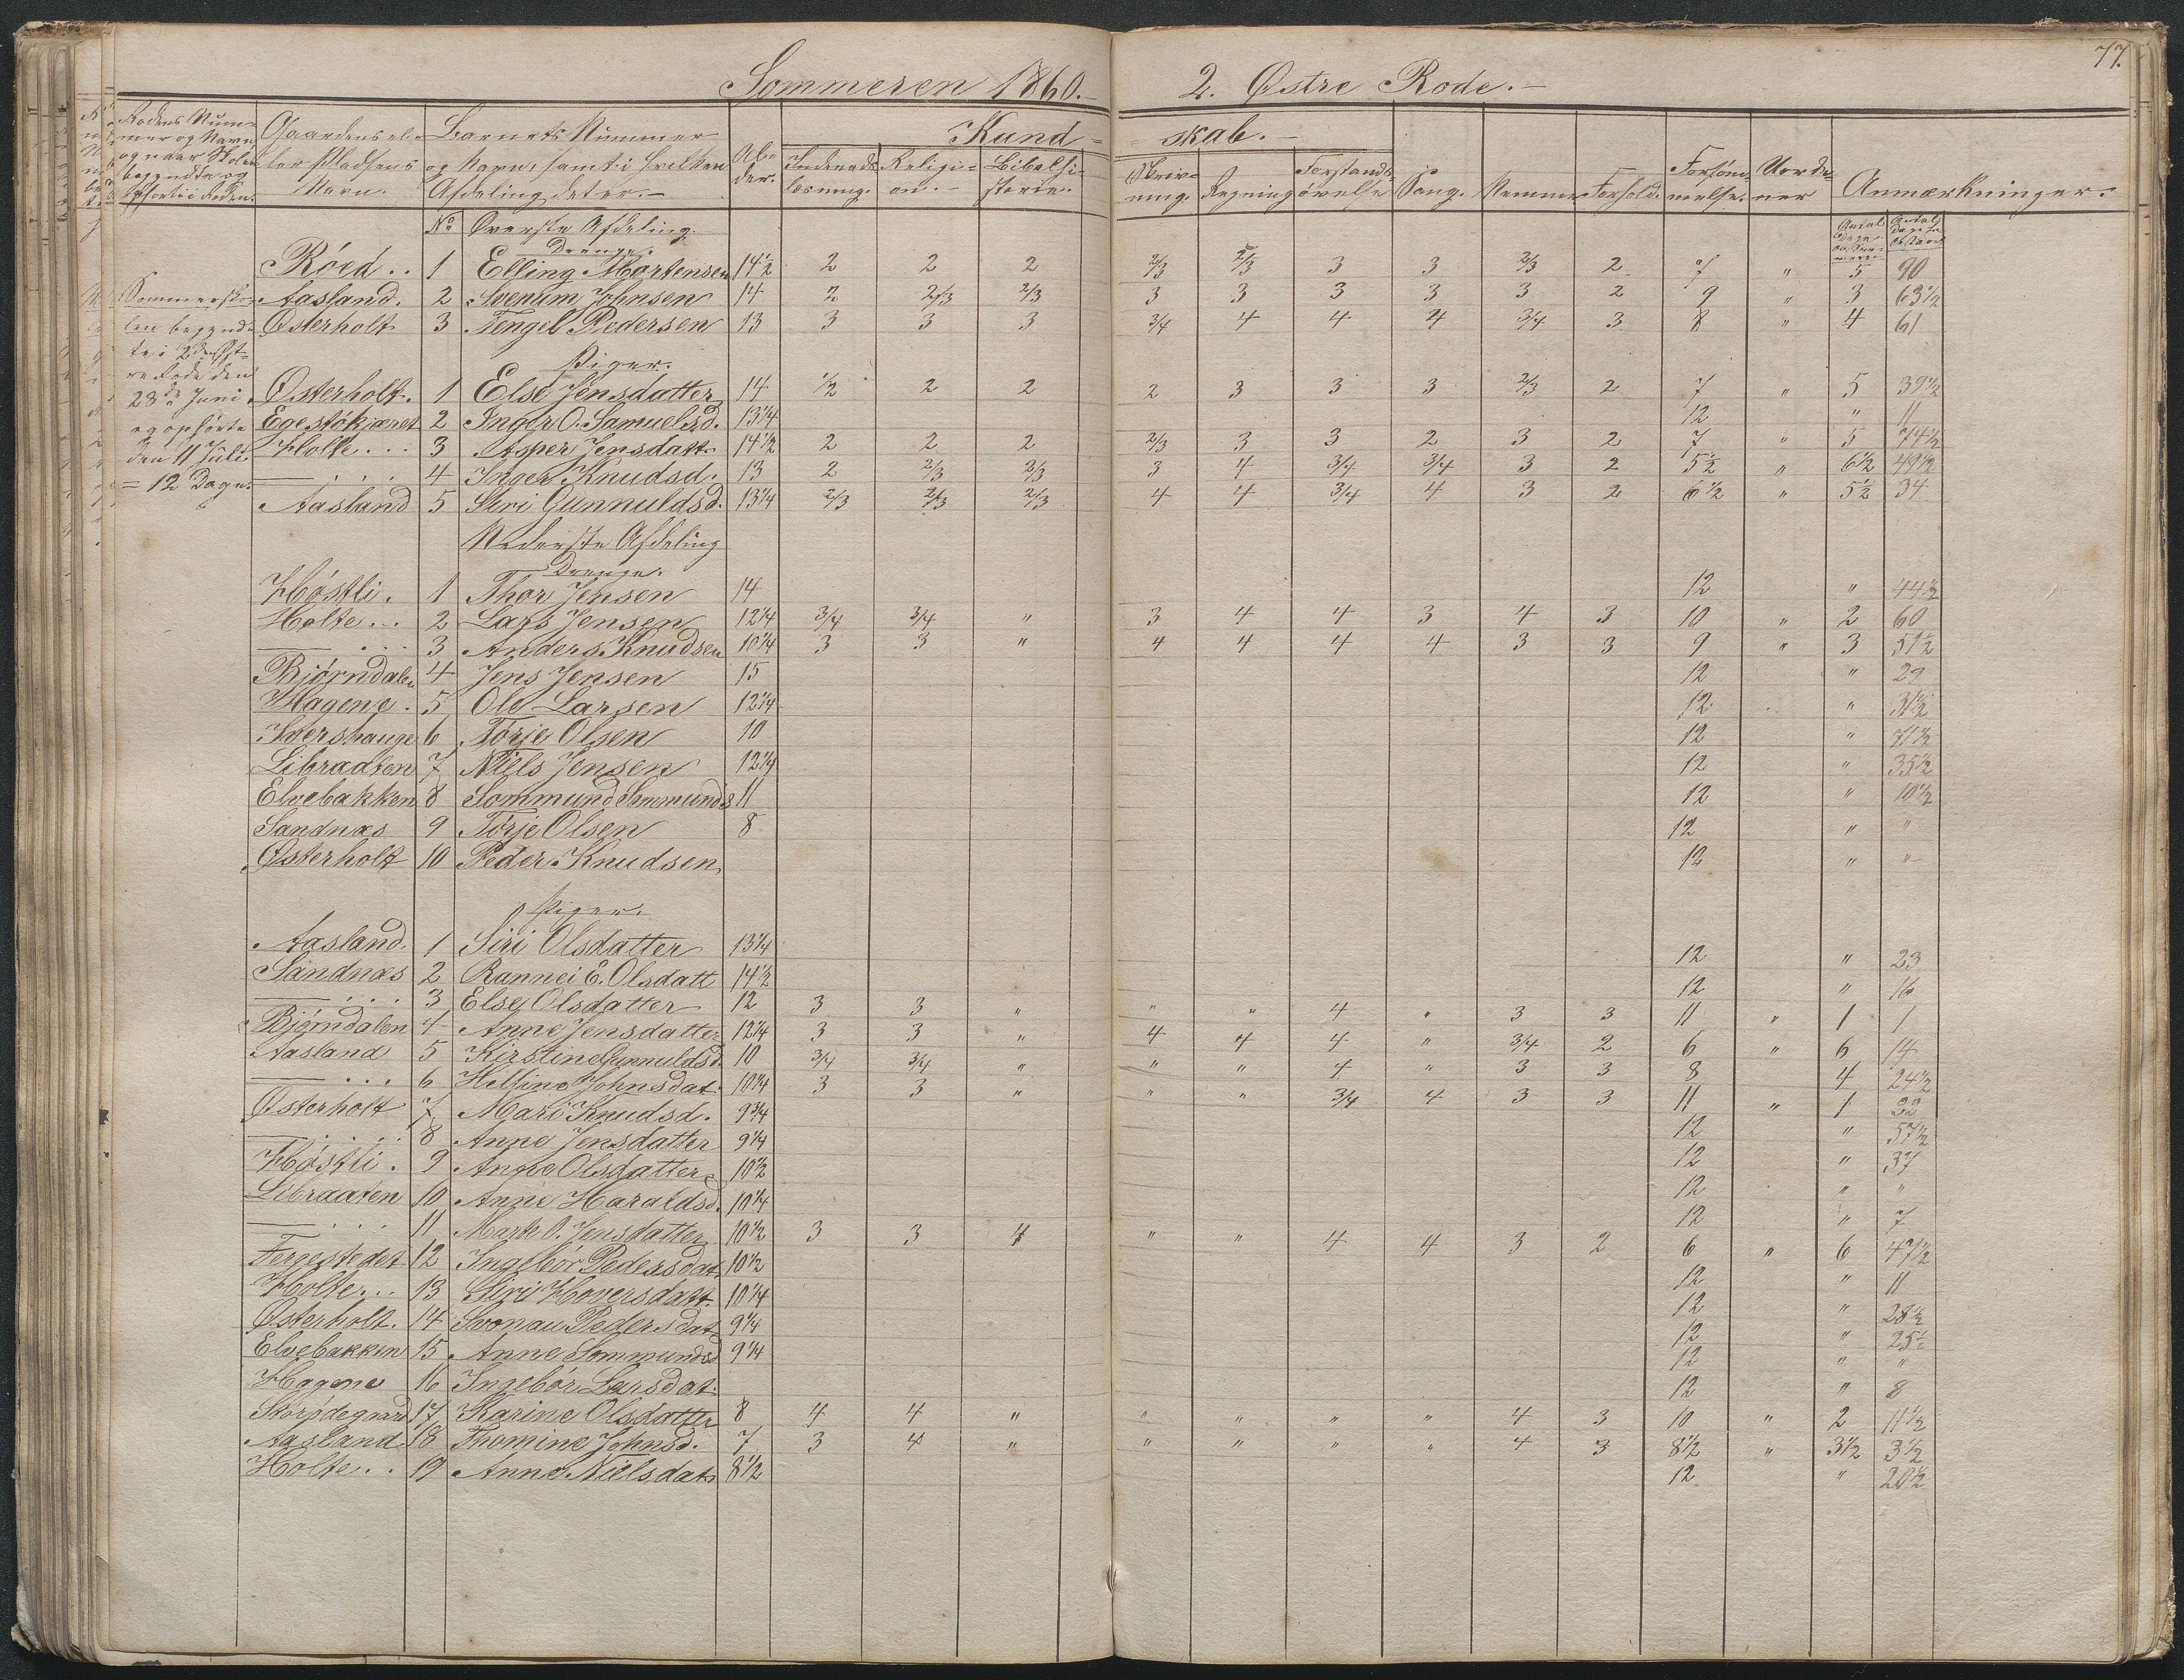 77.
Sommeren 1860. 2. Østre Rode.
Rodens Nummer og Navn og naar Skolen begyndte og ophørte i Roden.
Gaardens eller Pladsens Navn.
Barnets Nummer og Navn, samt i hvilken Afdeling det er.
Alder.
Kundskab.
Indenadslæsning. Religion. Bibelhistorie. Skrivning. Regning Forstandsøvelse Sang. Nemme Forhold. Forsømmelse. Uordner Anmærkninger.
Antal Dage
Sommerskolen begyndte i 2den Østre Rode den 28de Juni og ophørte den 11 Juli = 12 Dage.
No Øverste Afdeling.
Drenge.
Róed . . 1 Elling Mortensen 14 1/2 2 2 2 2/3 2/3 3 3 2/3 2 7 " 5 90
Aasland. 2 Svenum Johnsen 14 2 2/3 2/3 3 3 3 3 3 2 9 " 3 63 1/2
Østerholt 3 Tengel Pedersen 13 3 3 3 3/4 4 4 4 3/4 3 8 " 4 61
Piger.
Østerholt. 1 Else Jensdatter 14 1/2 2 2 2 3 3 3 2/3 2 7 " 5 39 1/2
Egestókjæret 2 Inger O. Samuelsd. 13 1/4 12 " 11
Holte . . . 3 Asper Jensdatt. 14 1/2 2 2 2 2/3 3 3 2 3 2 7 " 5 74 1/2
— . . . 4 Inger Knudsd. 13 2 2/3 2/3 3 4 3/4 3/4 3 2 5 1/2 " 6 1/2 49 1/2
Aasland 5 Siri Gunnuldsd. 13 1/4 2/3 2/3 2/3 4 4 3/4 4 3 2 6 1/2 " 5 1/2 34
Nederste Afdeling
Drenge.
Hóstli. 1 Thor Jensen 14 12 " 44 1/2
Holte . . 2 Lars Jensen 12 1/4 3/4 3/4 " 3 4 4 3 4 3 10 " 2 60
— . . . 3 Anders Knudsen 10 1/4 3 3 " 4 4 4 4 3 3 9 " 3 51 1/2
Bjørndalen 4 Jens Jensen 15 12 " 29
Hagene . 5 Ole Larsen 12 1/4 12 " 31 1/2
Ivershauge 6 Tórje Olsen 10 12 " 71 1/2
Libraaten 7 Niels Jensen 12 1/4 12 " 35 1/2
Elvebakken 8 Sommund Sommunds 11 12 " 10 1/2
Sandnæs 9 Tórje Olsen 8 12 " "
Østerholt 10 Peder Knudsen 12 " "
Piger.
Aasland. 1 Siri Olsdatter 13 1/4 12 " 23
Sandnæs 2 Rannei E. Olsdatt 14 1/2 12 " 16
— . . . 3 Else Olsdatter 12 3 3 " " " 4 " 3 3 11 " 1 1
Bjørndalen 4 Anne Jensdatter 12 1/4 3 3 " 4 4 4 " 3/4 2 6 " 6 14
Aasland 5 Kirstine Gunnuldsd. 10 3/4 3/4 " " " 4 " 3 3 8 4 24 1/2
— . . . 6 Helline Johnsdat. 10 3/4 3 3 " " " 3/4 4 3 3 11 " 1 32
Østerholt 7 Mari Knudsd. 9 3/4 12 " 57 1/2
— . . . 8 Anne Jensdatter 9 1/4 12 " 37
Hóstli . 9 Anne Olsdatter 10 1/2 12 " "
Libraaten 10 Anne Haraldsd. 10 1/4 12 " 7
— . . . 11 Marte O. Jensdatter 10 1/2 3 3 4 " " 4 4 3 2 6 " 6 47 1/2
Fergestedet 12 Ingebór Pedersdat. 10 1/2 12 " 11
Holte . . . 13 Siri Hoversdatt. 10 1/4 12 " 28 1/2
Østerholt. 14 Svonau Pedersdat. 9 1/4 12 " 25 1/2
Elvebakken 15 Anne Sommundsd 9 1/4 12 " "
Hagene 16 Ingebór Larsdat. 12 " 8
Storødegaard 17 Karine Olsdatter 8 4 4 " " " " " 4 3 10 " 2 11 1/2
Aasland 18 Thomine Johnsd. 7 3 4 " " " " " 4 3 8 1/2 " 3 1/2 3 1/2
Holte . . 19 Anne Nielsdat. 8 1/2 12 " 20 1/2